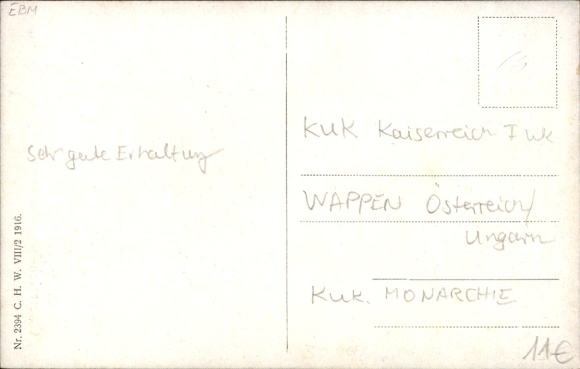 EBM
Sehr gute Erhaltung
Nr. 2394 C. H. W. VIII/2 1916.
KUK Kaiserreich I WK
WAPPEN Österreich/
Ungarn
KuK. MONARCHIE
11€